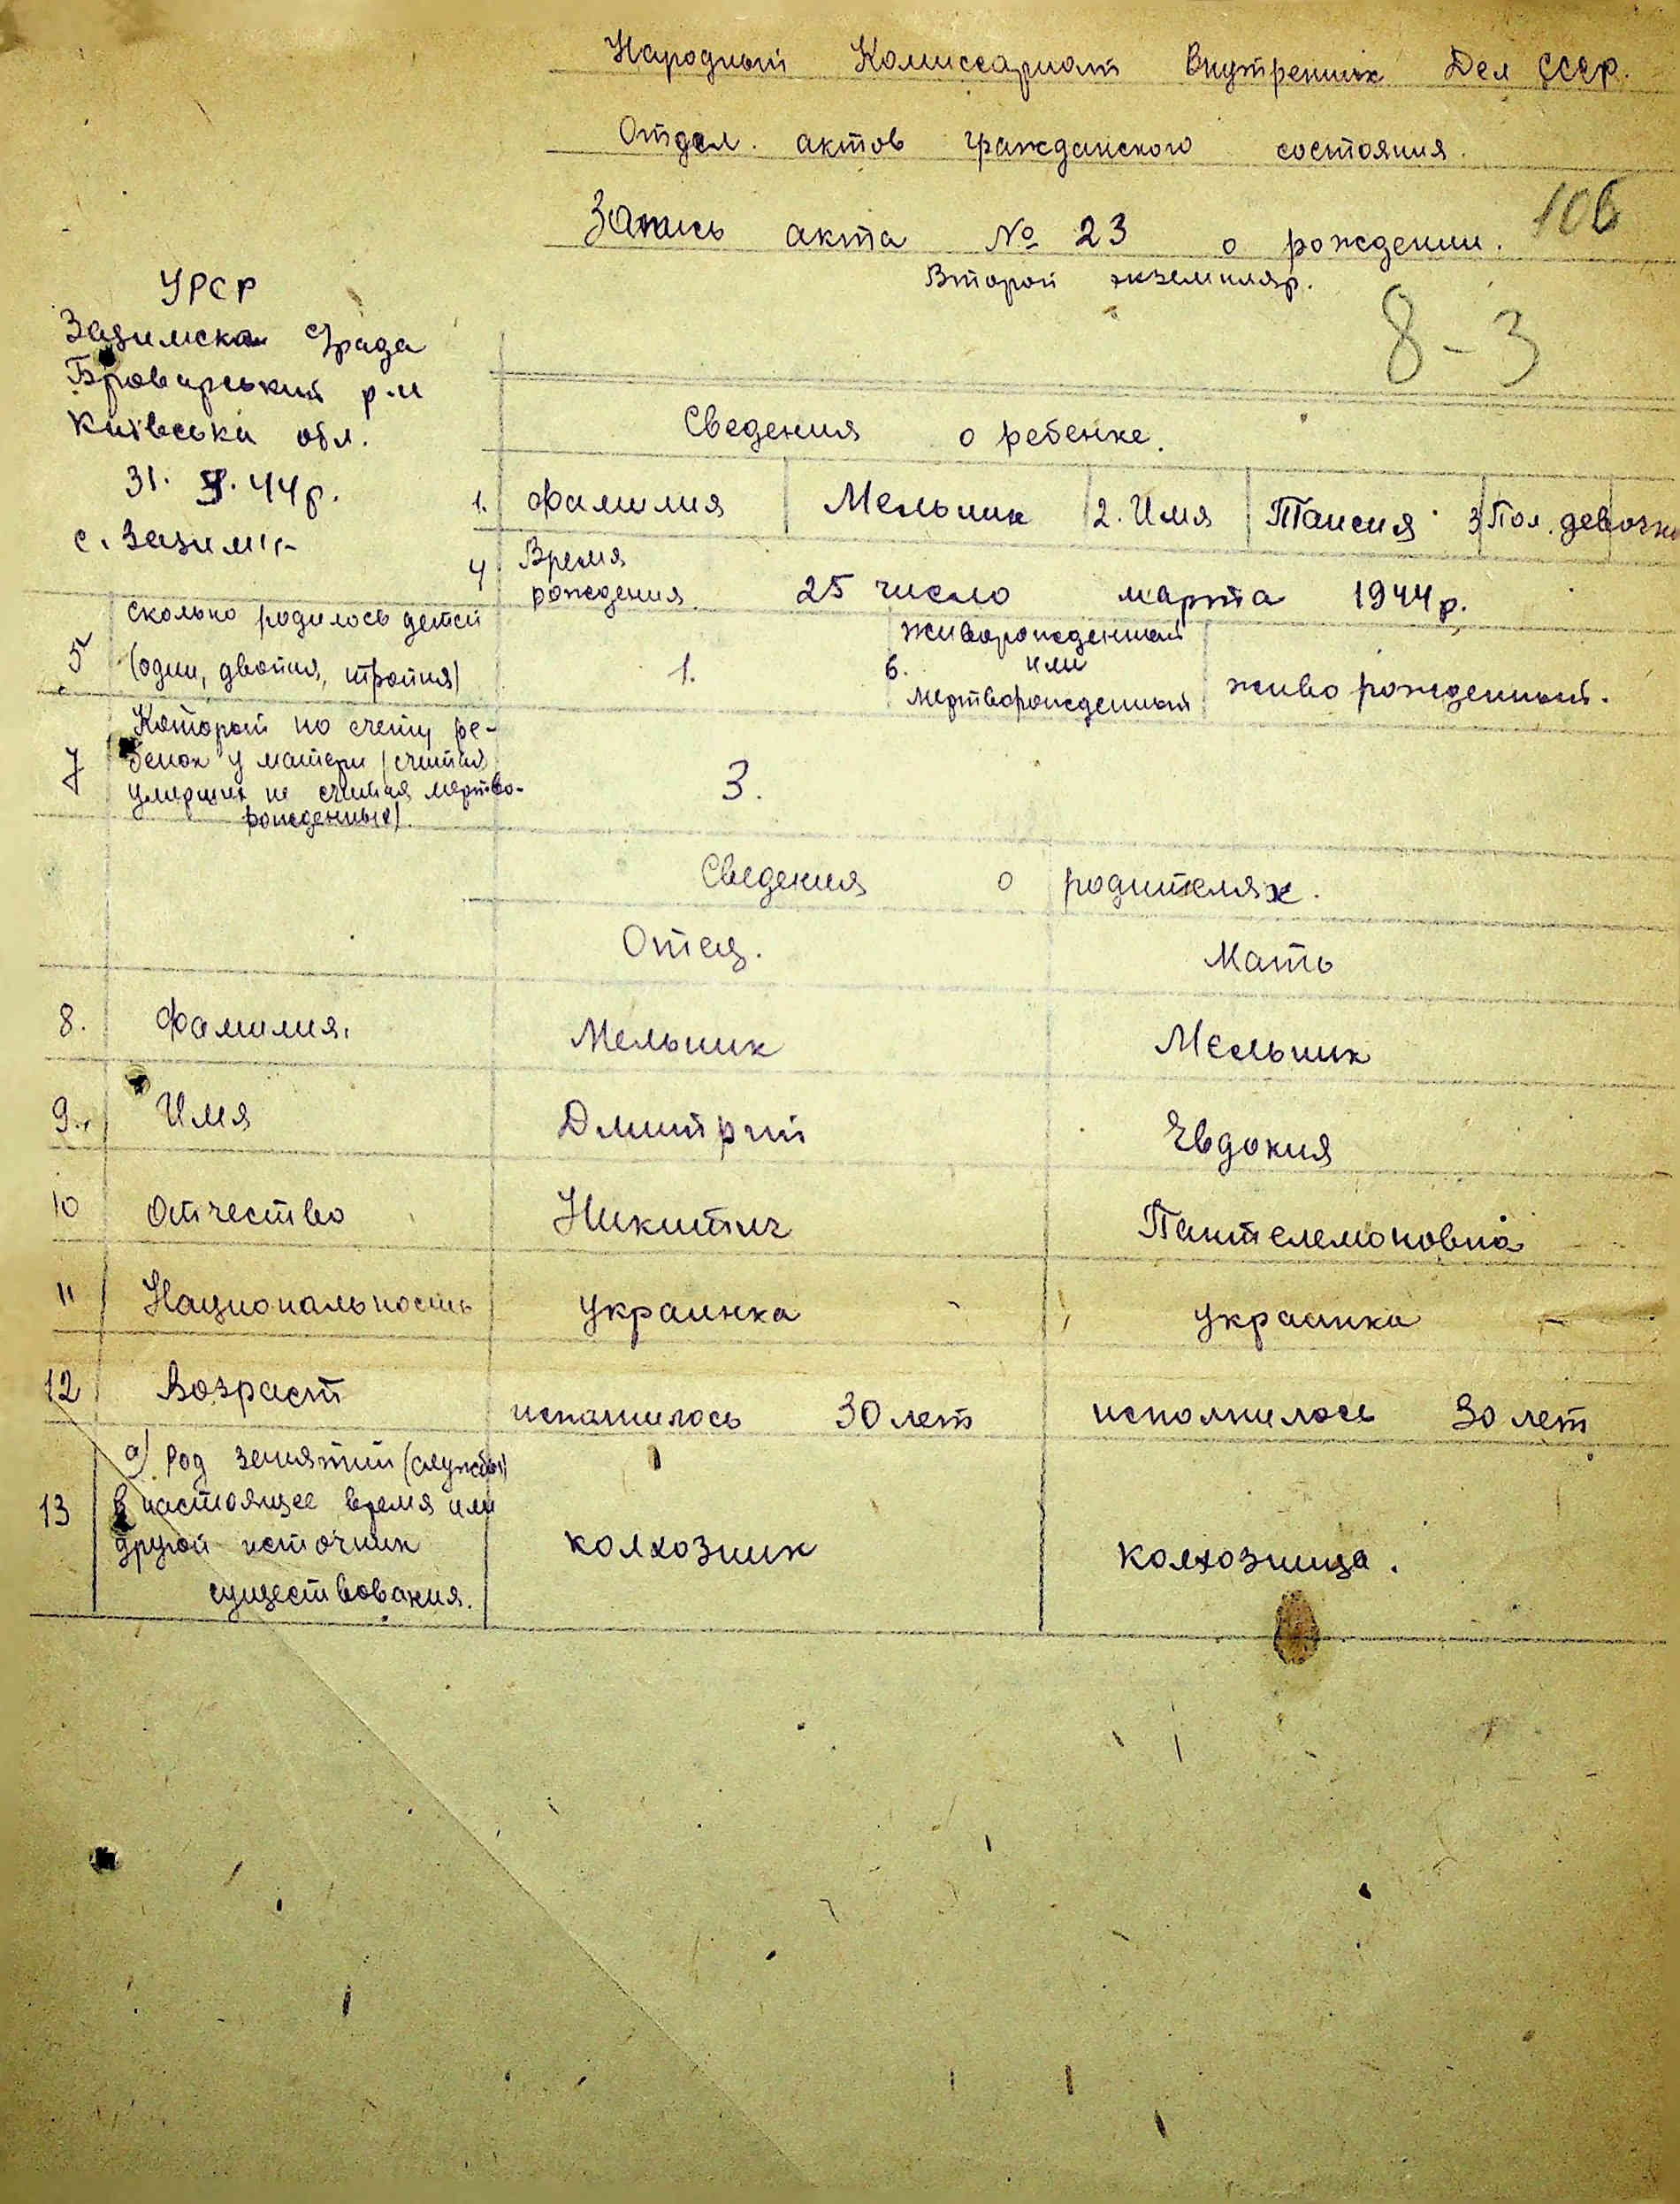 Народный Комиссариат Внутренних Дел СССР.
Отдел. актов гражданского состояния.
Запись акта № 23 о рождении.
106
Второй экземпляр.
8-3
УРСР
Зазимска с/рада
Броварський р-н
Київська обл.
31. 44р.
с. Зазимʼє
Сведения о ребенке.
1. Фамилия Мельник 2. Имя Таисия 3 Пол. девочка
4. Время рождения 25 число марта 1944р.
5 Сколько родилось детей
(один, двойня, тройня) 1.
6. живорожденный
или
мертворожденный
живо рожденный.
7 Который по счету ре-
бенок у матери (считая
умерших не считая мертво-
рожденных)
3.
Сведения о родителях.
Отец. Мать
8. Фамилия. Мельник Мельник
9. Имя Дмитрий Евдокия
10 Отчество Никитич Пантелемоновна
11 Национальность украинка украинка
12 Возраст исполнилось 30 лет исполнилось 30 лет
13 а) Род занятий (службы)
в настоящее время или
другой источник
существования.
колхозник колхозница.